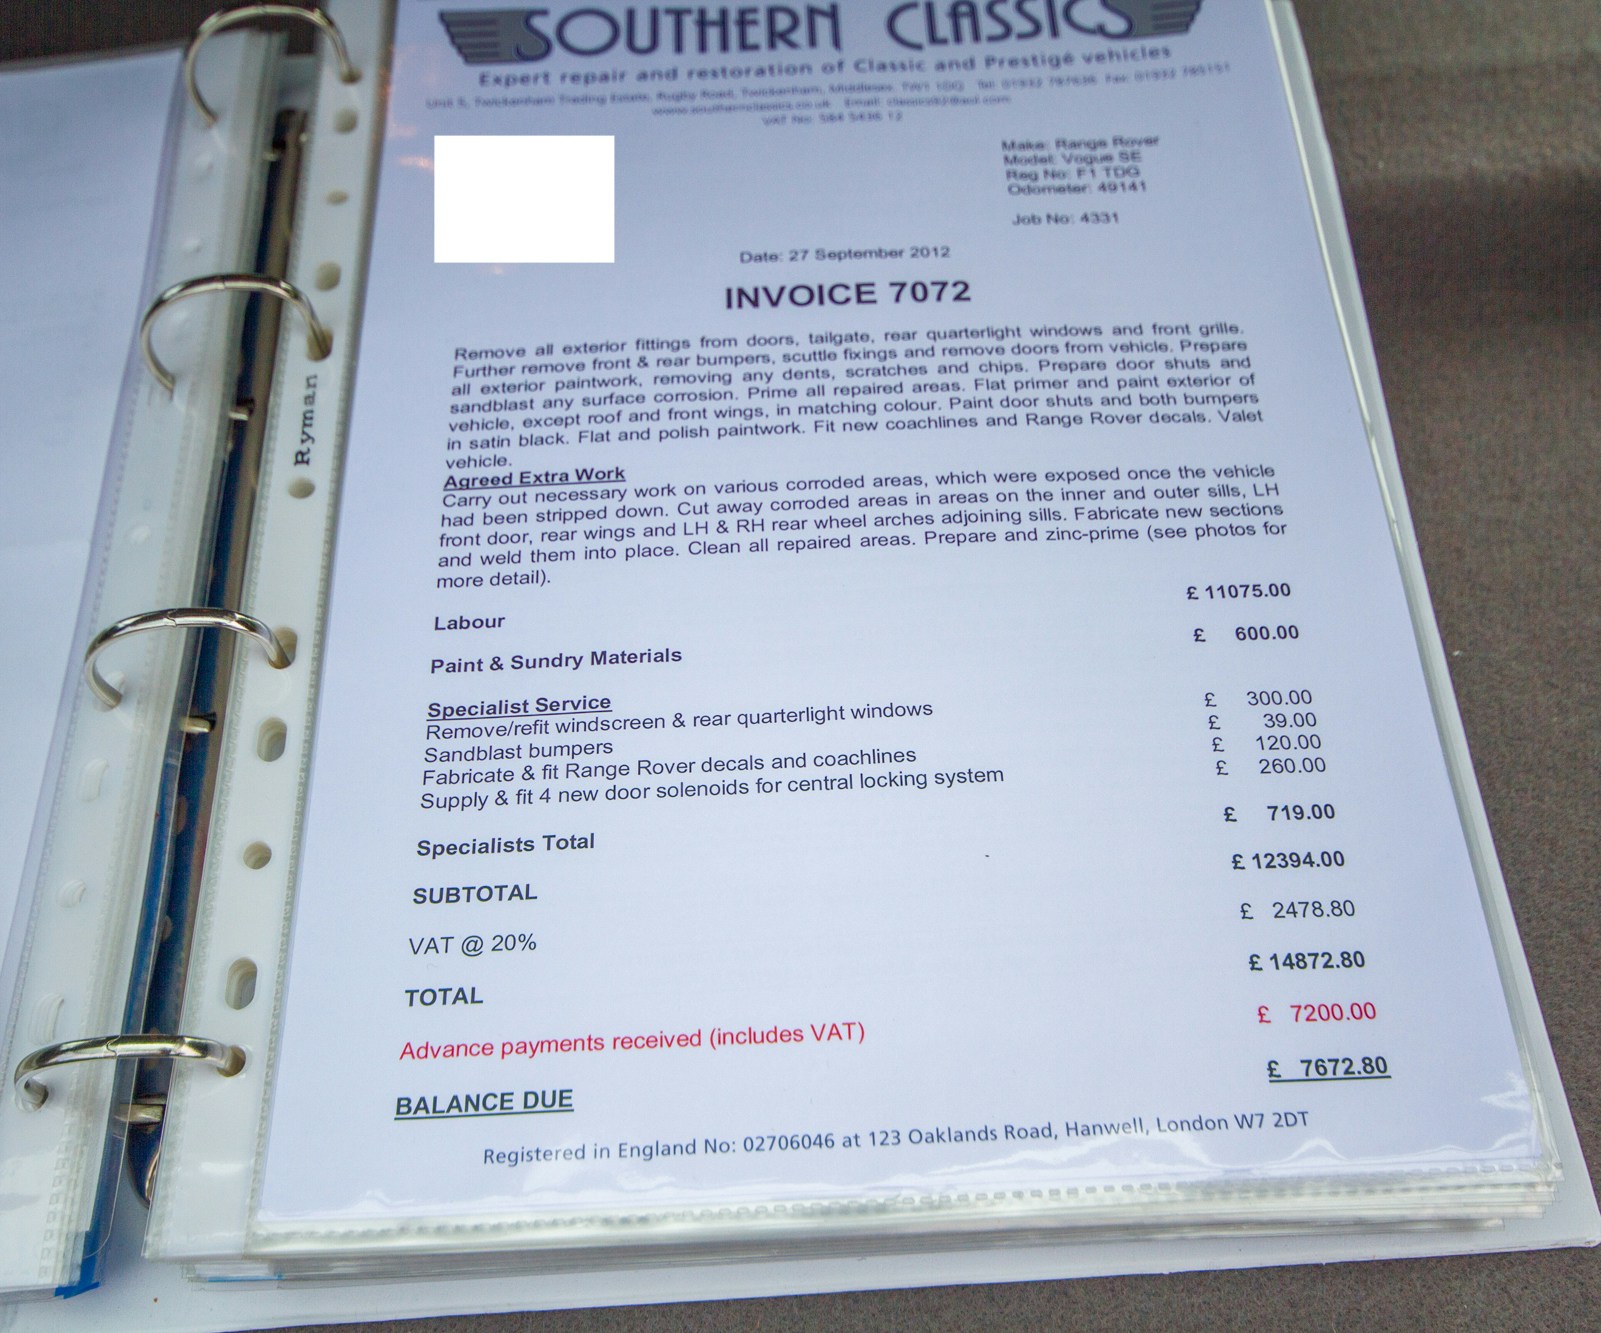 SOUTHERN CLASSICS
Expert repair and restoration of Classic and Prestigé vehicles
Unit 5, Twickenham Trading Estate, Rugby Road, Twickenham, Middlesex, TW1 1DG Tel:
VAT No: 584 5436 12
Make: Range Rover
Model: Vogue SE
Reg No: F1 TDG
Odometer: 49141
Job No: 4331
Date: 27 September 2012
INVOICE 7072
Remove all exterior fittings from doors, tailgate, rear quarterlight windows and front grille.
Further remove front & rear bumpers, scuttle fixings and remove doors from vehicle. Prepare
all exterior paintwork, removing any dents, scratches and chips. Prepare door shuts and
sandblast any surface corrosion. Prime all repaired areas. Flat primer and paint exterior of
vehicle, except roof and front wings, in matching colour. Paint door shuts and both bumpers
in satin black. Flat and polish paintwork. Fit new coachlines and Range Rover decals. Valet
vehicle.
Agreed Extra Work
Carry out necessary work on various corroded areas, which were exposed once the vehicle
had been stripped down. Cut away corroded areas in areas on the inner and outer sills, LH
front door, rear wings and LH & RH rear wheel arches adjoining sills. Fabricate new sections
and weld them into place. Clean all repaired areas. Prepare and zinc-prime (see photos for
more detail).
Labour £ 11075.00
Paint & Sundry Materials £ 600.00
Specialist Service
Remove/refit windscreen & rear quarterlight windows £ 300.00
Sandblast bumpers £ 39.00
Fabricate & fit Range Rover decals and coachlines £ 120.00
Supply & fit 4 new door solenoids for central locking system £ 260.00
Specialists Total £ 719.00
SUBTOTAL £ 12394.00
VAT @ 20% £ 2478.80
TOTAL £ 14872.80
Advance payments received (includes VAT) £ 7200.00
BALANCE DUE £ 7672.80
Registered in England No: 02706046 at 123 Oaklands Road, Hanwell, London W7 2DT
Ryman